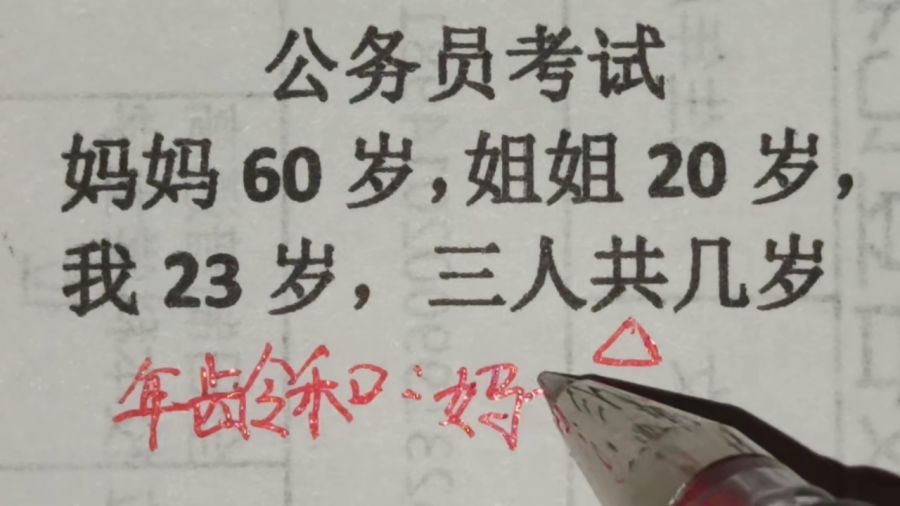 公务员考试
妈妈 60 岁，姐姐 20 岁，
我 23 岁，三人共几岁
年龄和：妈